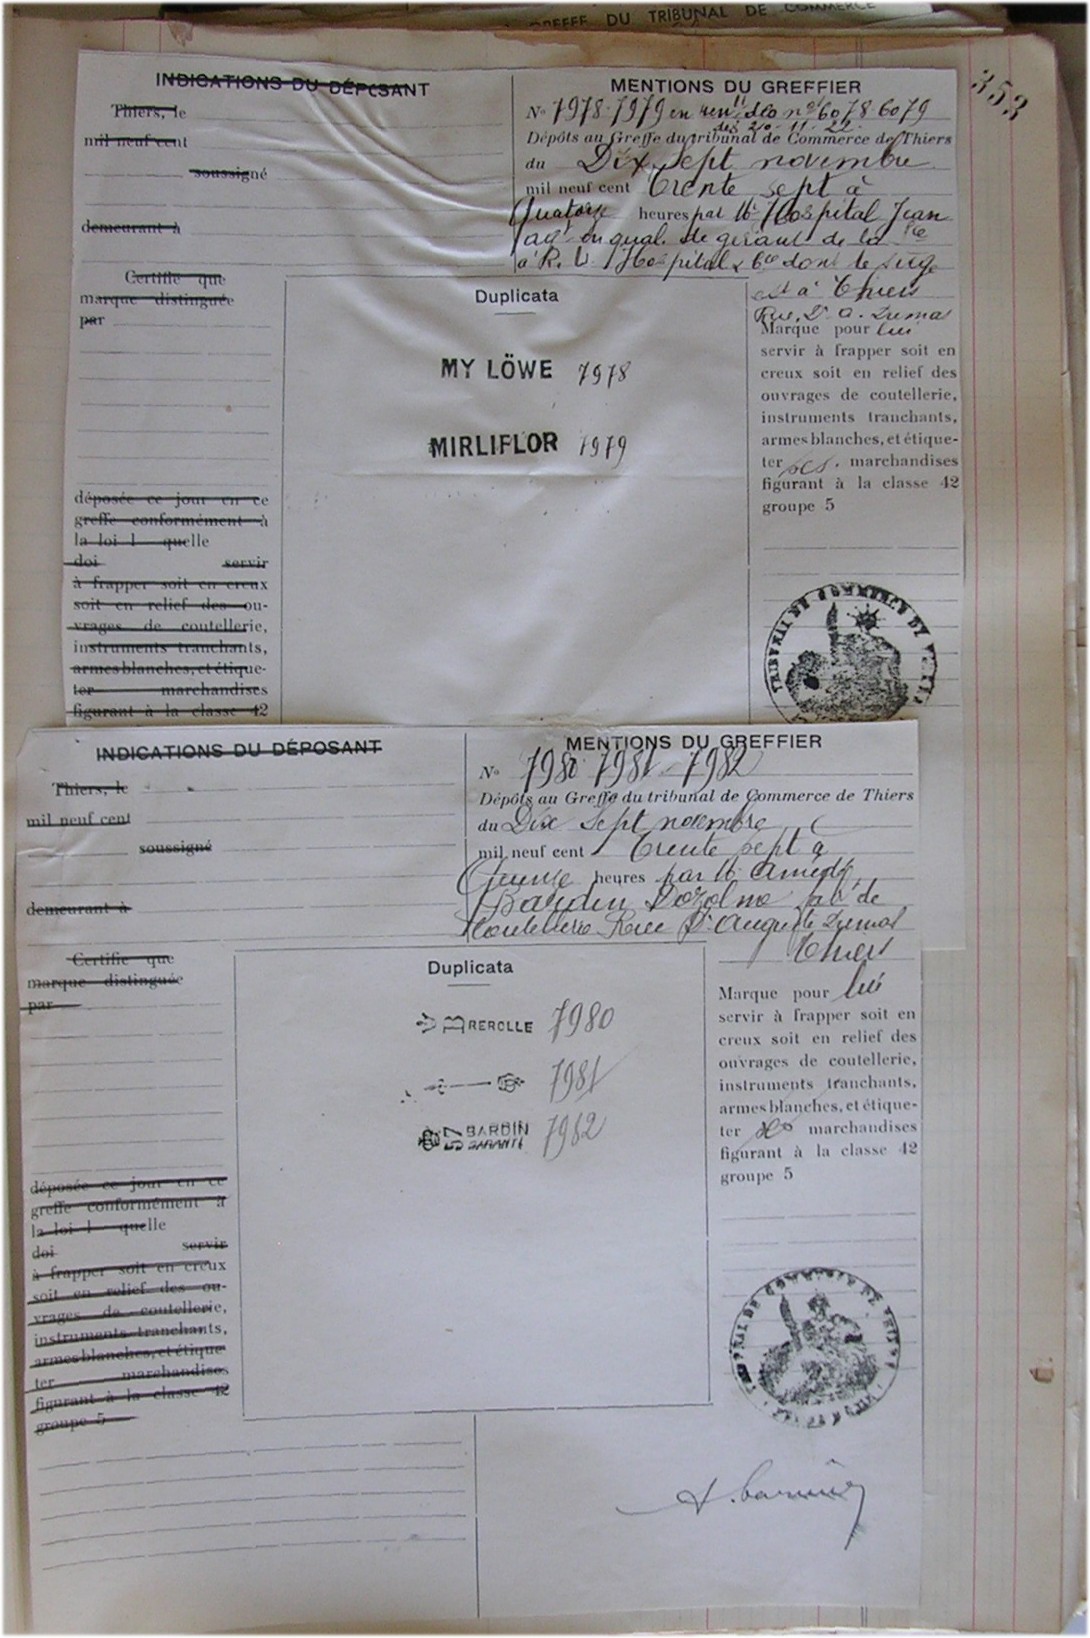 GREFFE DU TRIBUNAL DE COMMERCE
353
INDICATIONS DU DÉPOSANT
Thiers, le
mil neuf cent
soussigné
demeurant à
Certifie que
marque distinguée
par
déposée ce jour en ce
greffe conformément à
la loi l quelle
doi servir
à frapper soit en creux
soit en relief des ou-
vrages de coutellerie,
instruments tranchants,
armes blanches, et étique-
ter marchandises
figurant à la classe 42
MENTIONS DU GREFFIER
No 7978-7979 en ren des nos 6078-6079
des 20-11-22
Dépôts au Greffe du tribunal de Commerce de Thiers
du Dix sept novembre
mil neuf cent Trente sept à
Quatorze heures par Mr Hospital Jean
agt en qual. de gérant de la Sté
à R. L. Hospital & Cie dont le siège
est à Thiers
Rue Dr A. Dumas
Marque pour lui
servir à frapper soit en
creux soit en relief des
ouvrages de coutellerie,
instruments tranchants,
armes blanches, et étique-
ter ses marchandises
figurant à la classe 42
groupe 5
Duplicata
MY LÖWE 7978
MIRLIFLOR 7979
TRIBUNAL DE COMMERCE DE THIERS
INDICATIONS DU DÉPOSANT
Thiers, le
mil neuf cent
soussigné
demeurant à
Certifie que
marque distinguée
par
déposée ce jour en ce
greffe conformément à
la loi l quelle
doi servir
à frapper soit en creux
soit en relief des ou-
vrages de coutellerie,
instruments tranchants,
armes blanches, et étique-
ter marchandises
figurant à la classe 42
groupe 5
MENTIONS DU GREFFIER
No 7980 7981 7982
Dépôts au Greffe du tribunal de Commerce de Thiers
du Dix sept novembre
mil neuf cent Trente sept à
Quinze heures par Mr Amédé
Bardin Dozolme fabt de
Coutellerie Rue Dr Auguste Dumas
Thiers
Marque pour lui
servir à frapper soit en
creux soit en relief des
ouvrages de coutellerie,
instruments tranchants,
armes blanches, et étique-
ter marchandises
figurant à la classe 42
groupe 5
Duplicata
BREROLLE 7980
7981
57 BARDIN GARANTI 7982
TRIBUNAL DE COMMERCE DE THIERS